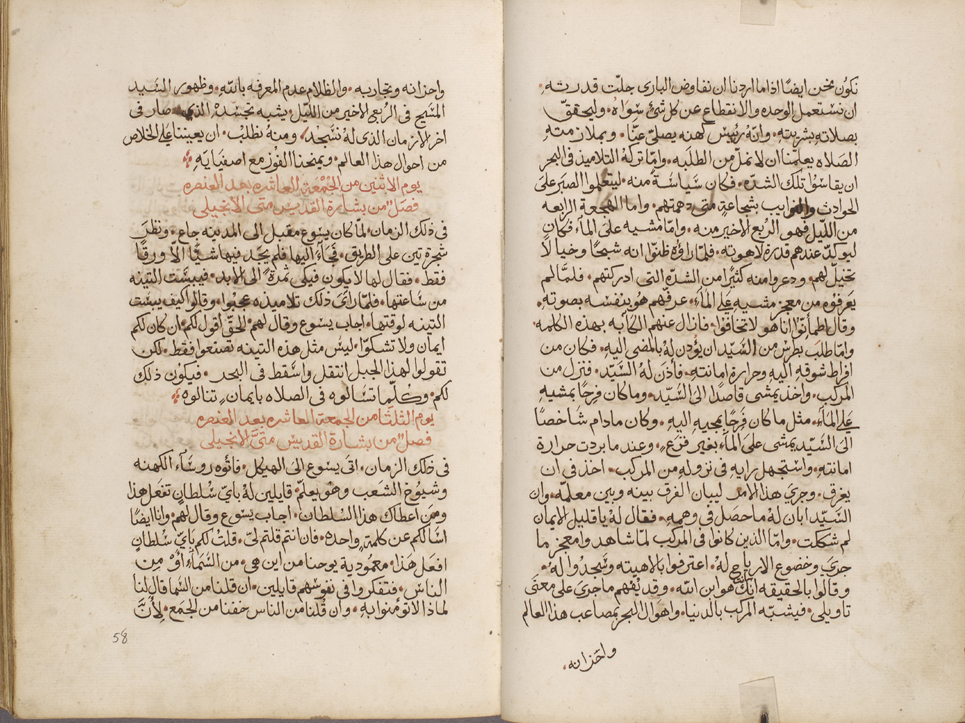 نكون نحن ايضًا اذا ما اردنا ان نفاوض الباري جلّت قدرته
ان نستعمل الوحده والانقطاع عن كل شئ سواه وليحقق
بصلاته بشريته وانه رئيس كهنه يصلي عنّا وبملازمته
الصلاه يعلّمنا ان لا نملّ من الطلبه وامّا تركهُ التلاميذ في البحر
ان يقاسُوا تلك الشدّه فكان سَياسَة منه ليتعلموا الصَبر على
الحوادث والنوايب بشجاعةٍ متى دهمتهم وامّا الهجعة الرابعه
من الليل فهو الربع الاخير منه وامّا مشيه على المآء فكان
ليوكّد عندهم قدرة لاهوته فلمّا رأوه ظنّوا انه شبحًا وخيالًا
تخيّل لهم وذعروا منه كثيرًا من الشدّه التي ادركتهم فلمّا لم
يَعرفوه من معجز مشيه على المآء عرفهم هو بنفسه بصوته
وقال اطمأنوا انا هو لا تخافوا فازال عنهم الكآبه بهذه الكلمه
وامّا طلب بطرس من السيّد ان يؤذن لهُ بالمضى اليه فكان من
افراط شوقه اليه وحرارة امانته فأذن لهُ السيّد فنزل من
المركب واخذ يمشى قاصدًا الى السّيد وما كان فرحًا بمشيه
على المآء مثل ما كان فرحًا بمجيه اليه وكان مادام شاخصًا
الى السّيد يمشى على المآء بغير فزع وعند ما بردت حرارة
امانته واستجهل رايه في نزوله من المركب اخذ في ان
يغرق وجرى هذا الامر ليبان الفرق بينه وبين معلّمه وان
السّيد ابان لهُ ما حصل في وهمه فقال لهُ يا قليل الايمان
لم شككت وامّا الذين كانوا في المركب لمّا شاهدوا معجز ما
جرى وخضوع الارياح لهُ اعترفوا بلاهيته وسَجدوا لهُ
وقالوا بالحقيقه انّك هو ابن الله وقد يُفهم ما جرى على معنى
تاويلي فيشبّه المركب بالدنيا واهوال البحر بمصاعب هذا العالم
واحزانه
واحزانه وتجاربه والظلام عدم المعرفه بالله وظهور السَيد
المسَيح في الربع الاخير من الليل يشبه تجسّده الذي صار في
اخر الازمان الذى لهُ نسَجد ومنهُ نطلب ان يعيننا على الخلاص
من احوال هذا العالم ويمنحنا الفوز مع اصفيايه
يوم الاثنين من الجمعة العاشره بعد العنصره
فصل من بشارة القديس متى الانجيلي
في ذلك الزمان لما كان يسوع مقبل الى المدينه جاع ونظر
شجرة تين على الطريق فجآء اليها فلم يجد فيها شيًا الّا ورقًا
فقط فقال لها لا يكون فيكى ثمرةً الى الابد فيبسَت التينه
من ساعتها فلمّا رأى ذلك تلاميذه عجبوا وقالوا كيف يبسَت
التينه لوقتها اجاب يسوع وقال لهم الحقّ اقول لكم ان كان لكم
ايمان ولا تشكّوا ليس مثل هذه التينه تصنعوا فقط لكن
تقولوا لهذا الجبل انتقل واسَقط في البحر فيكون ذلك
لكم وكلّما تسَالوه في الصلاه بايمان تنالوه
يوم الثلثا من الجمعة العاشره بعد العنصره
فصل من بشارة القديس متى الانجيلي
في ذلك الزمان اتى يسوع الى الهيكل فاتوه روسَآء الكهنه
وشيوخ الشعب وهو يعلم قايلين لهُ باي سُلطان تفعل هذا
ومن اعطاك هذا السُلطان اجاب يسوع وقال لهم وانا ايضًا
اسَالكم عن كلمة واحده فان انتم قلتم لى قلت لكم باي سُلطانٍ
افعل هذا معمودية يوحنا من اين هي من السَمآء أو من
الناس فتفكروا في نفوسهم قايلين ان قلنا من السَما قال لنا
لماذا لا تومنوا به وان قلنا من الناس خفنا من الجمع لأنّ
58